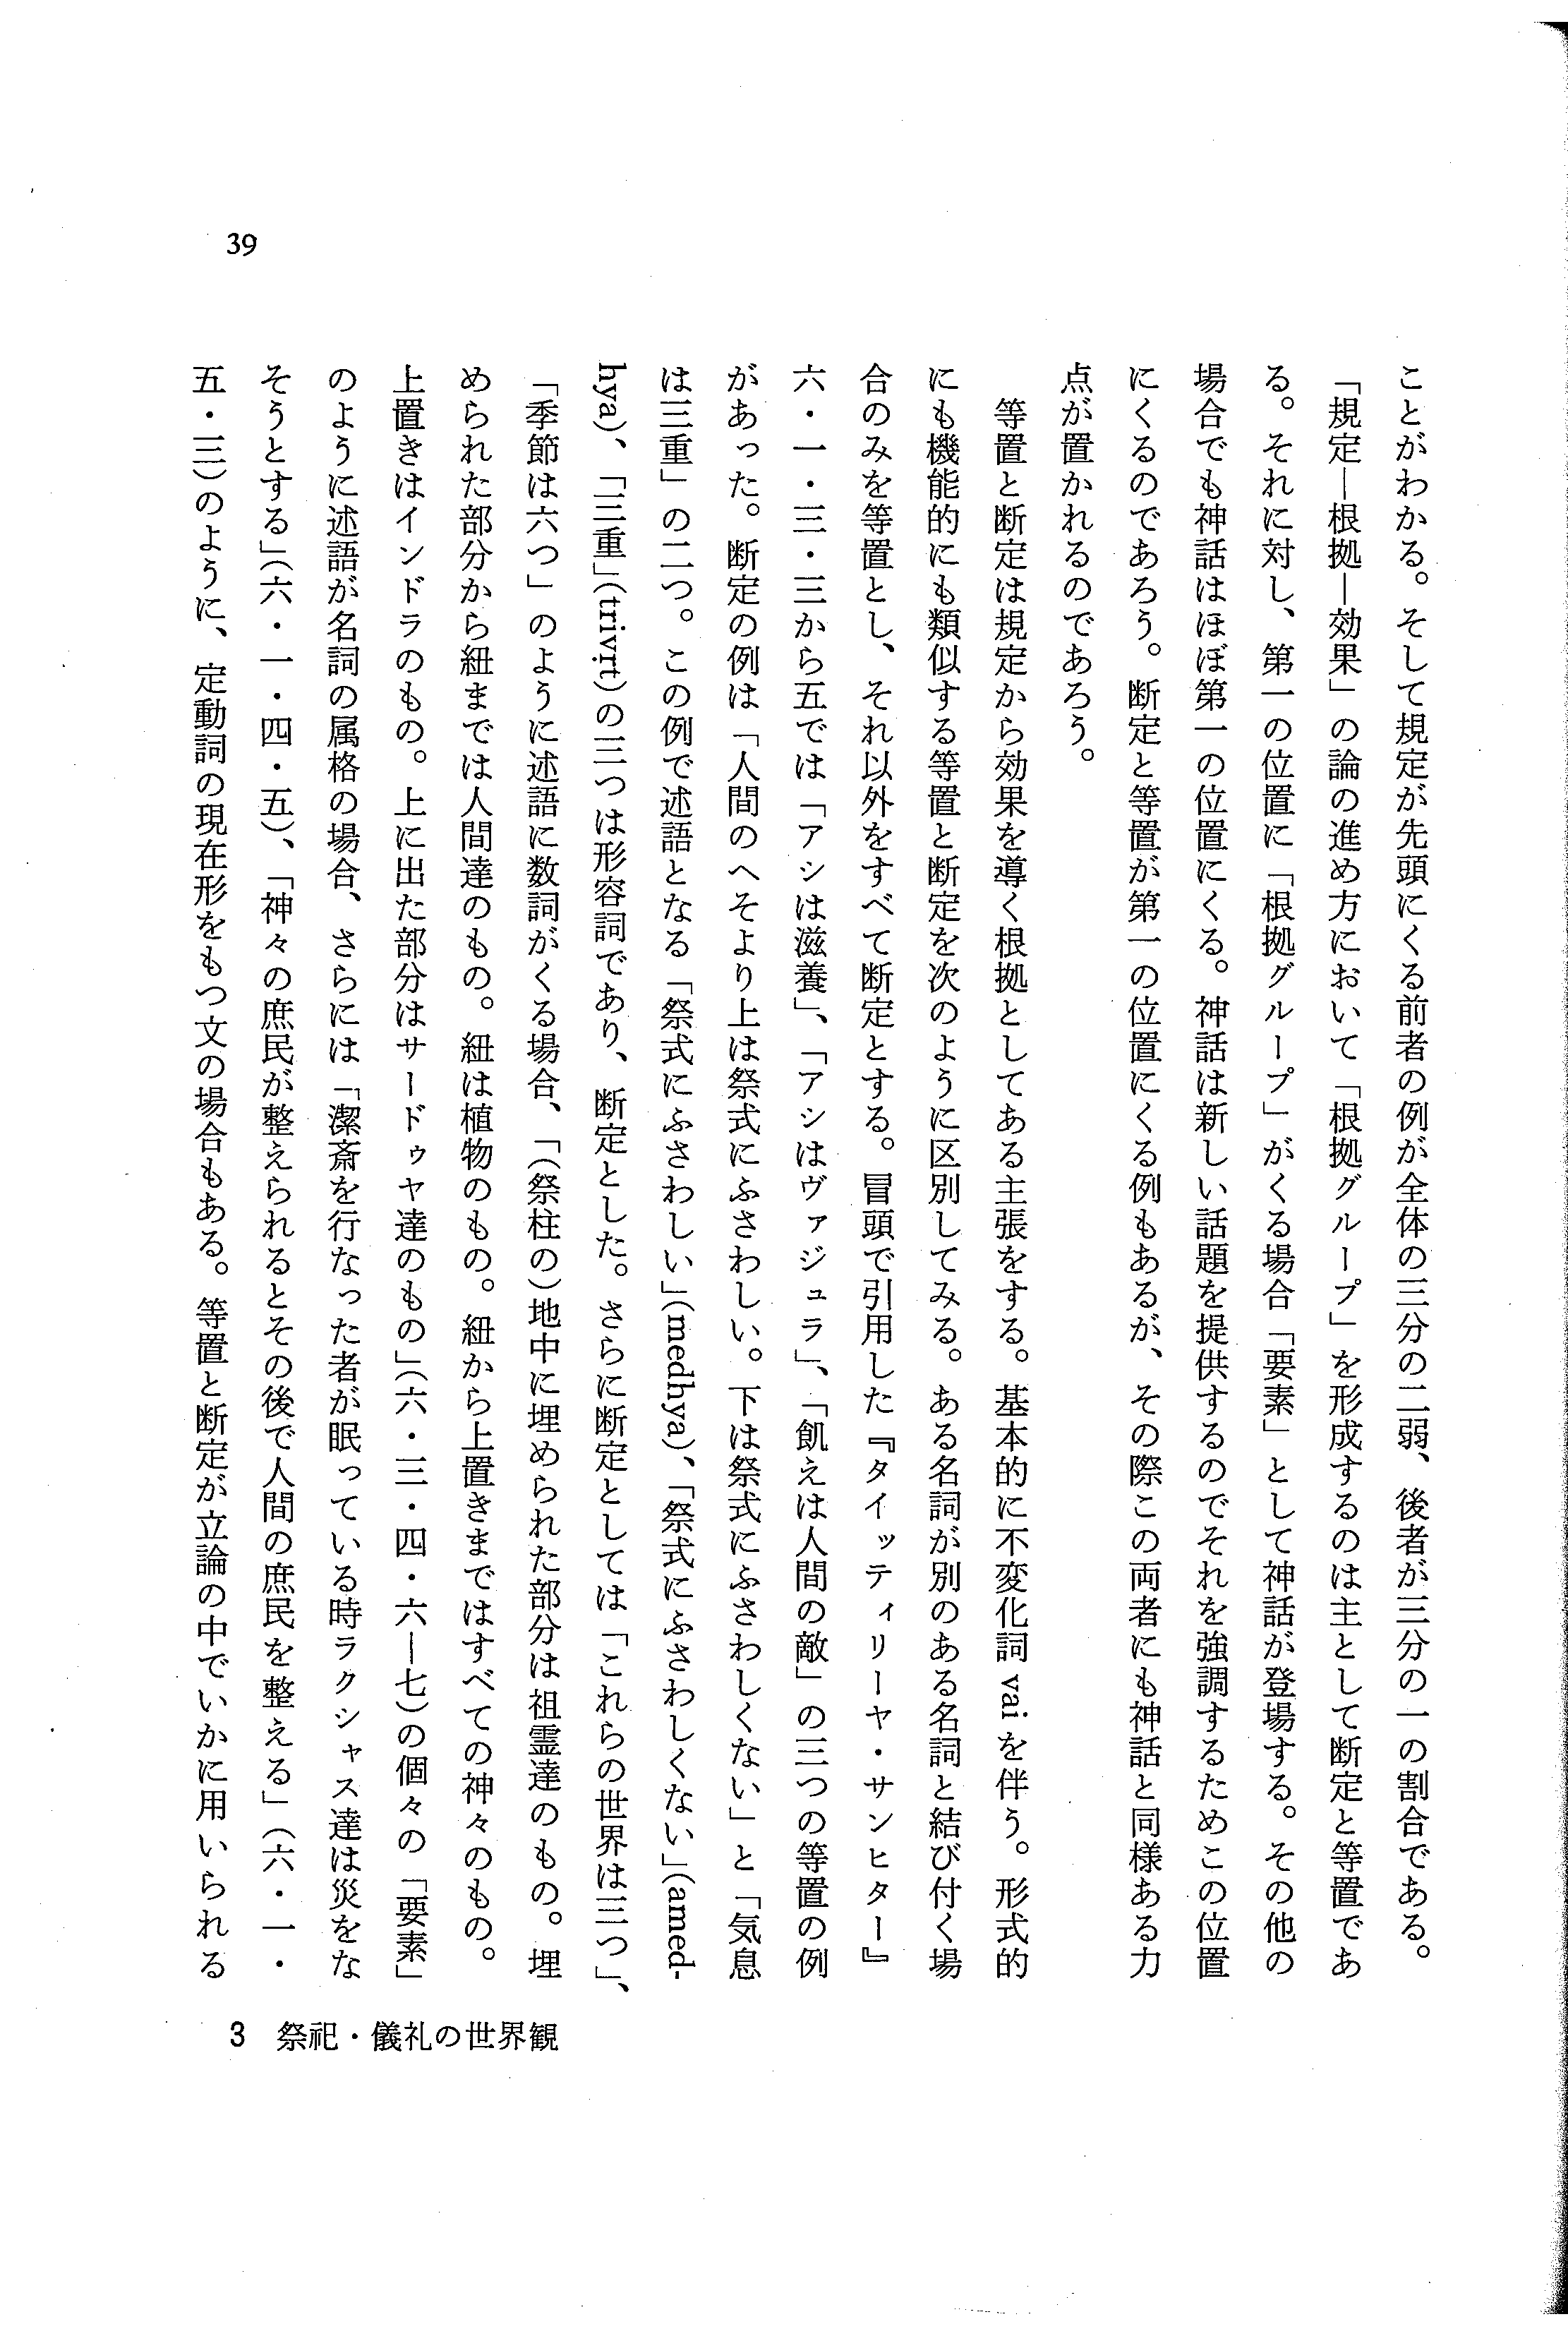 ことがわかる。そして規定が先頭にくる前者の例が全体の三分の二弱、後者が三分の一の割合である。
「規定―根拠―効果」の論の進め方において「根拠グループ」を形成するのは主として断定と等置であ
る。それに対し、第一の位置に「根拠グループ」がくる場合「要素」として神話が登場する。その他の
場合でも神話はほぼ第一の位置にくる。神話は新しい話題を提供するのでそれを強調するためこの位置
にくるのであろう。断定と等置が第一の位置にくる例もあるが、その際この両者にも神話と同様ある力
点が置かれるのであろう。
　等置と断定は規定から効果を導く根拠としてある主張をする。基本的に不変化詞 vai を伴う。形式的
にも機能的にも類似する等置と断定を次のように区別してみる。ある名詞が別のある名詞と結び付く場
合のみを等置とし、それ以外をすべて断定とする。冒頭で引用した『タイッティリーヤ・サンヒター』
六・一・三・三から五では「アシは滋養」、「アシはヴァジュラ」、「飢えは人間の敵」の三つの等置の例
があった。断定の例は「人間のへそより上は祭式にふさわしい。下は祭式にふさわしくない」と「気息
は三重」の二つ。この例で述語となる「祭式にふさわしい」(medhya)、「祭式にふさわしくない」(amed-
hya)、「三重」(trivṛt)の三つは形容詞であり、断定とした。さらに断定としては「これらの世界は三つ」、
「季節は六つ」のように述語に数詞がくる場合、「(祭柱の)地中に埋められた部分は祖霊達のもの。埋
められた部分から紐までは人間達のもの。紐は植物のもの。紐から上置きまではすべての神々のもの。
上置きはインドラのもの。上に出た部分はサードゥヤ達のもの」(六・三・四・六―七)の個々の「要素」
のように述語が名詞の属格の場合、さらには「潔斎を行なった者が眠っている時ラクシャス達は災をな
そうとする」(六・一・四・五)、「神々の庶民が整えられるとその後で人間の庶民を整える」(六・一・
五・三)のように、定動詞の現在形をもつ文の場合もある。等置と断定が立論の中でいかに用いられる
39
3　祭祀・儀礼の世界観